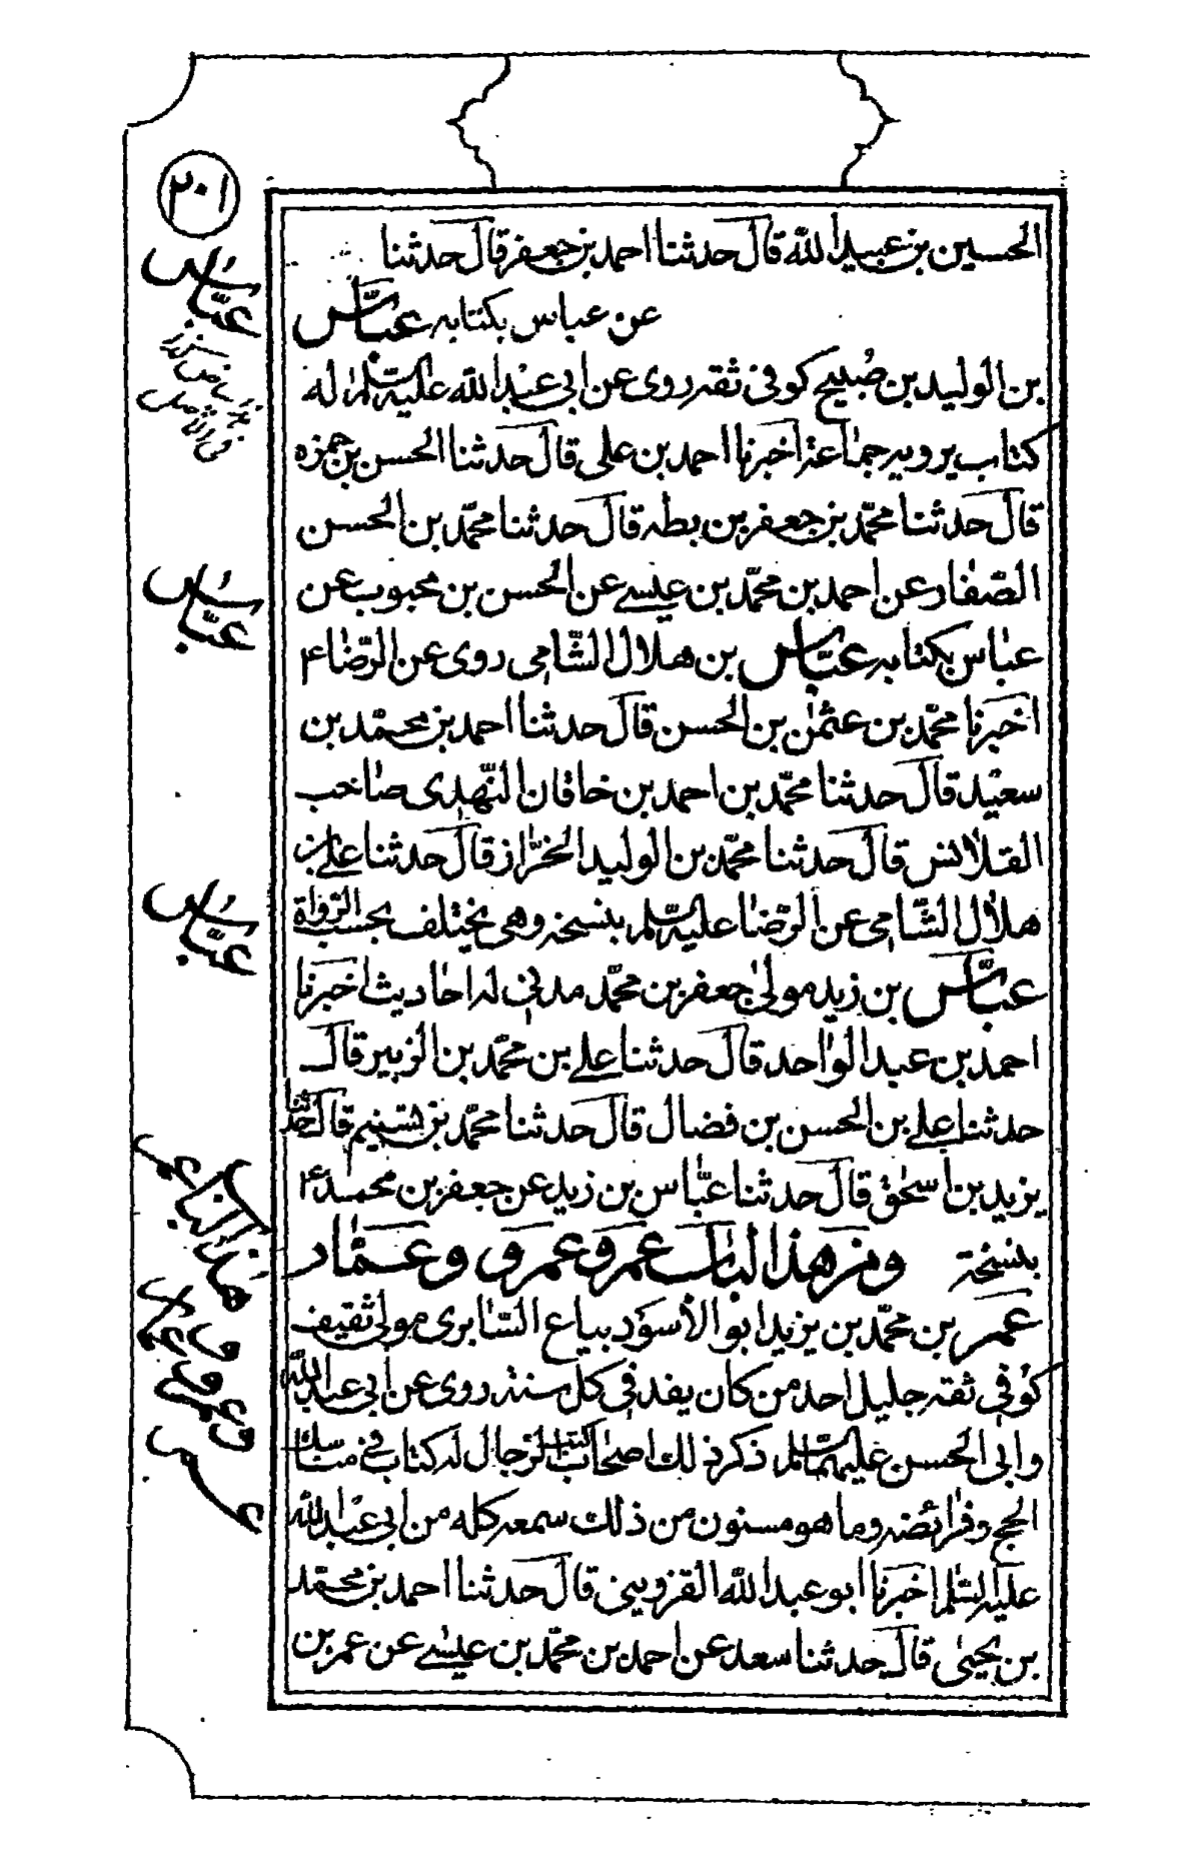 ٢٠١
الحسين بن عبيد الله قال حدثنا احمد بن جعفر قال حدثنا
عن عباس بكتابه عبّاس
بن الوليد بن صُبيح كوفى ثقه روى عن ابى عبد الله عليه السّلم له
كتاب يرويه جماعة اخبرنا احمد بن على قال حدثنا الحسن بن حمزه
قال حدثنا محمّد بن جعفر بن بطه قال حدثنا محمّد بن الحسن
الصّفار عن احمد بن محمّد بن عيسے عن الحسن بن محبوب عن
عباس بكتابه عبّاس بن هلال الشّامى روى عن الرّضا ۴
اخبرنا محمّد بن عثمٰن بن الحسن قال حدثنا احمد بن محمّد بن
سعيد قال حدثنا محمّد بن احمد بن خاقان النّهدى صاحب
القلانس قال حدثنا محمّد بن الوليد الخزّاز قال حدثنا علے بن
هلال الشّامى عن الرّضا عليه السّلم بنسخه وهى يختلف بحسب الرّواة
عبّاس بن زيد مولى جعفر بن محمّد مدنى له احاديث اخبرنا
احمد بن عبد الواحد قال حدثنا علے بن محمّد بن الزبير قال
حدثنا علے بن الحسن بن فضال قال حدثنا محمّد بن تسنيم قال حدّثنا
يزيد بن اسحٰق قال حدثنا عبّاس بن زيد عن جعفر بن محمد ۴
بنسخة ومن هذا الباب عمر وعمرو وعمّار
عمر بن محمّد بن يزيد ابو الأسود بياع السّابرى مولى ثقيف
كوفى ثقه جليل احد من كان يفد فى كل سنة روى عن ابى عبد الله
وابى الحسن عليهما السّلم ذكر ذلك اصحاب كتب الرجال له كتاب فى مناسك
الحج وفرائضه وما هو مسنون من ذلك سمعه كله من ابى عبد الله
عليه السّلم اخبرنا ابو عبد الله القزوينى قال حدثنا احمد بن محمّد
بن يحيى قال حدثنا سعد عن احمد بن محمّد بن عيسے عن عمر بن
عبّاس
عبّاس
عبّاس
هذا الباب
عمر